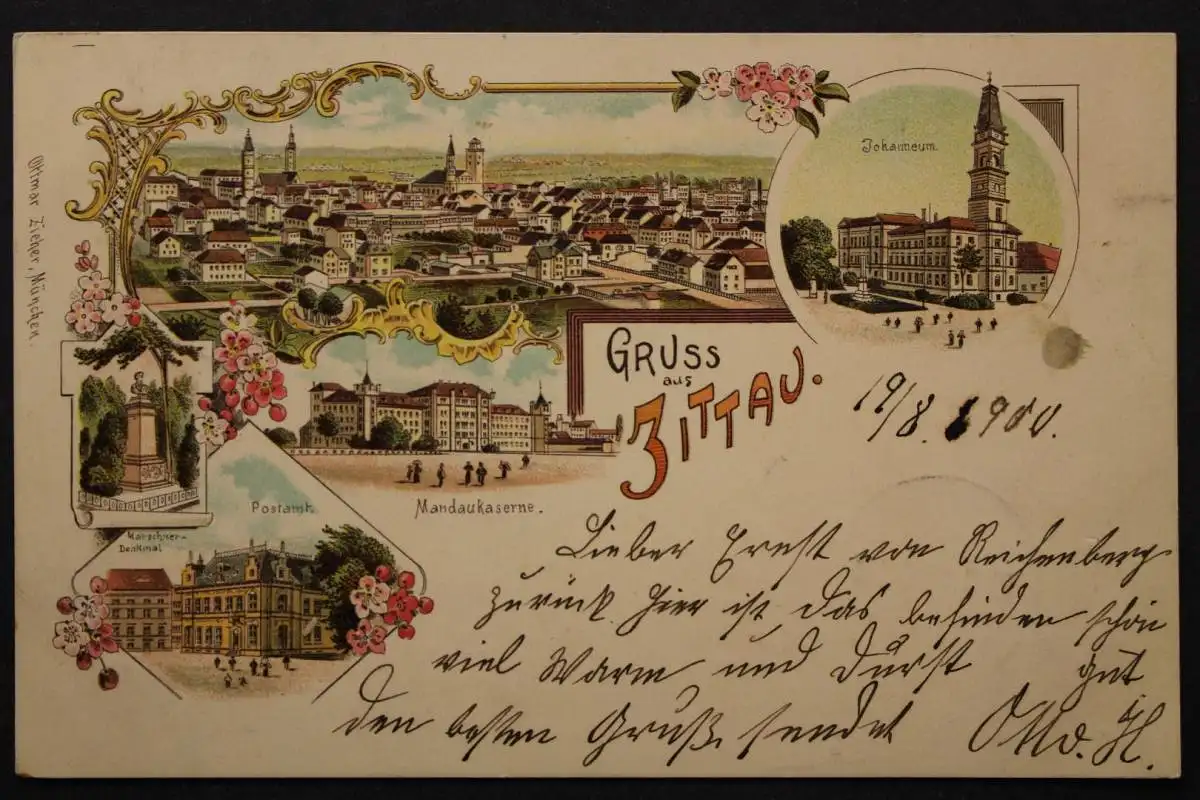 Ottmar Zieher, München.
Johanneum.
GRUSS
aus
ZITTAU.
19/8. 1900.
Mandaukaserne.
Marschner-
Denkmal
Postamt.
Lieber Ernst von Reichenberg
zurück. hier ist das befinden schön
viel Warm und Durst gut
den besten Gruß sendet Otto. H.